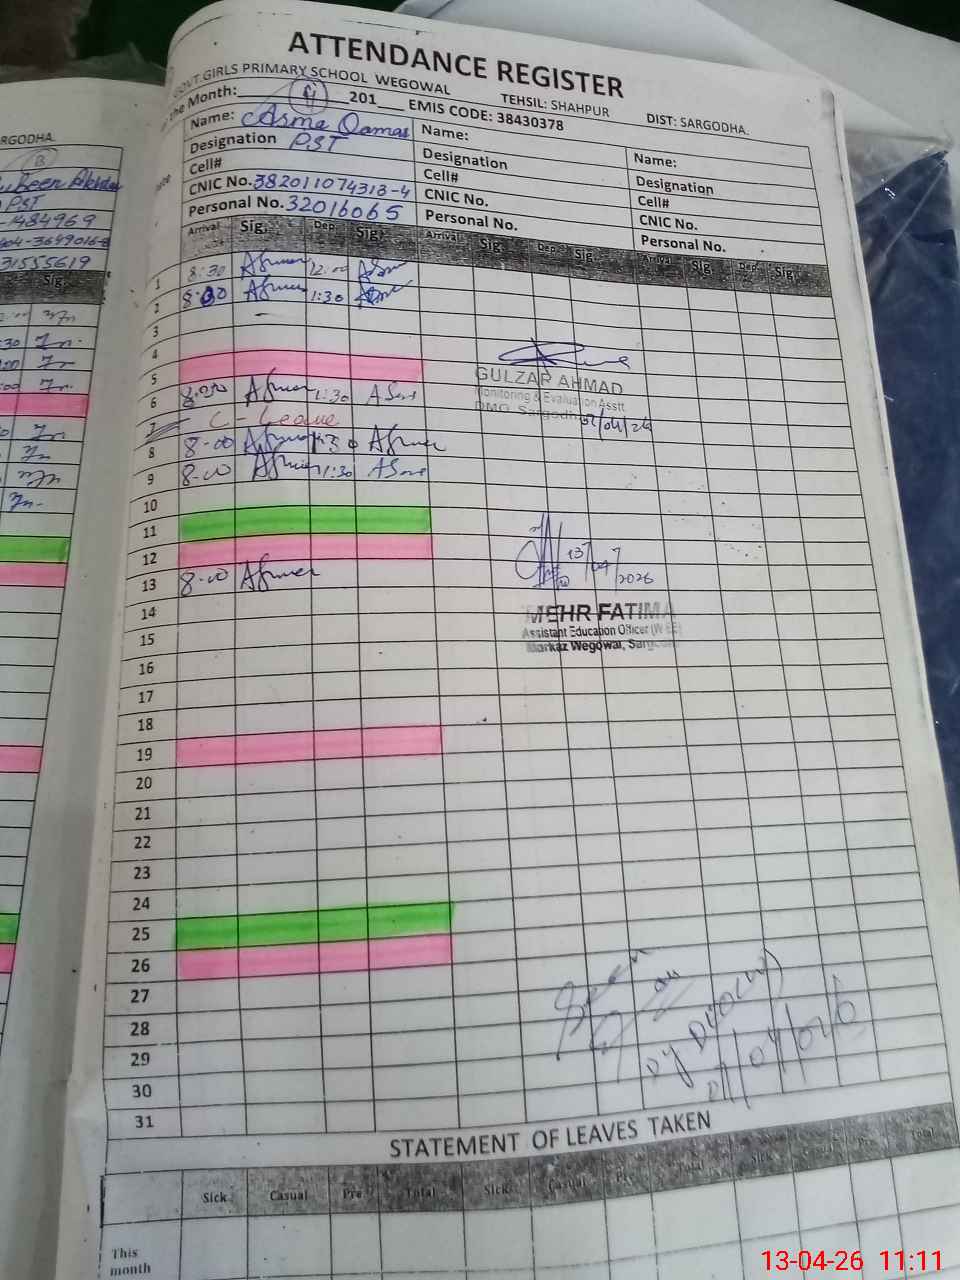 ATTENDANCE REGISTER
GOVT.GIRLS PRIMARY SCHOOL WEGOWAL TEHSIL: SHAHPUR DIST: SARGODHA.
the Month: 201___ EMIS CODE: 38430378
Name: Asma Qamar Name: Name:
Designation PST Designation Designation
Cell# Cell# Cell#
CNIC No. 382011074313-4 CNIC No. CNIC No.
Personal No. 32016065 Personal No. Personal No.
Arrival Sig. Dep. Sig. Arrival Sig. Dep. Sig. Arrival Sig. Dep. Sig.
1 8:30 12:00
2 8:00 1:30
3
4
5
6 8:00 1:30
7 C Leave
8 8-00 1:30
9 8-00 1:30
10
11
12
13 8-00
14
15
16
17
18
19
20
21
22
23
24
25
26
27
28
29
30
31
GULZAR AHMAD
Monitoring & Evaluation Asstt
DMO, Sargodha
13/04/2026
MEHR FATIMA
Assistant Education Officer (W-EE)
Markaz Wegowal, Sargodha
STATEMENT OF LEAVES TAKEN
Sick Casual Pre Total Sick Casual Pre Total Sick Casual Pre Total
This
month
RGODHA.
PST
-1484969
904-3649016-8
31555619
Sig.
13-04-26 11:11